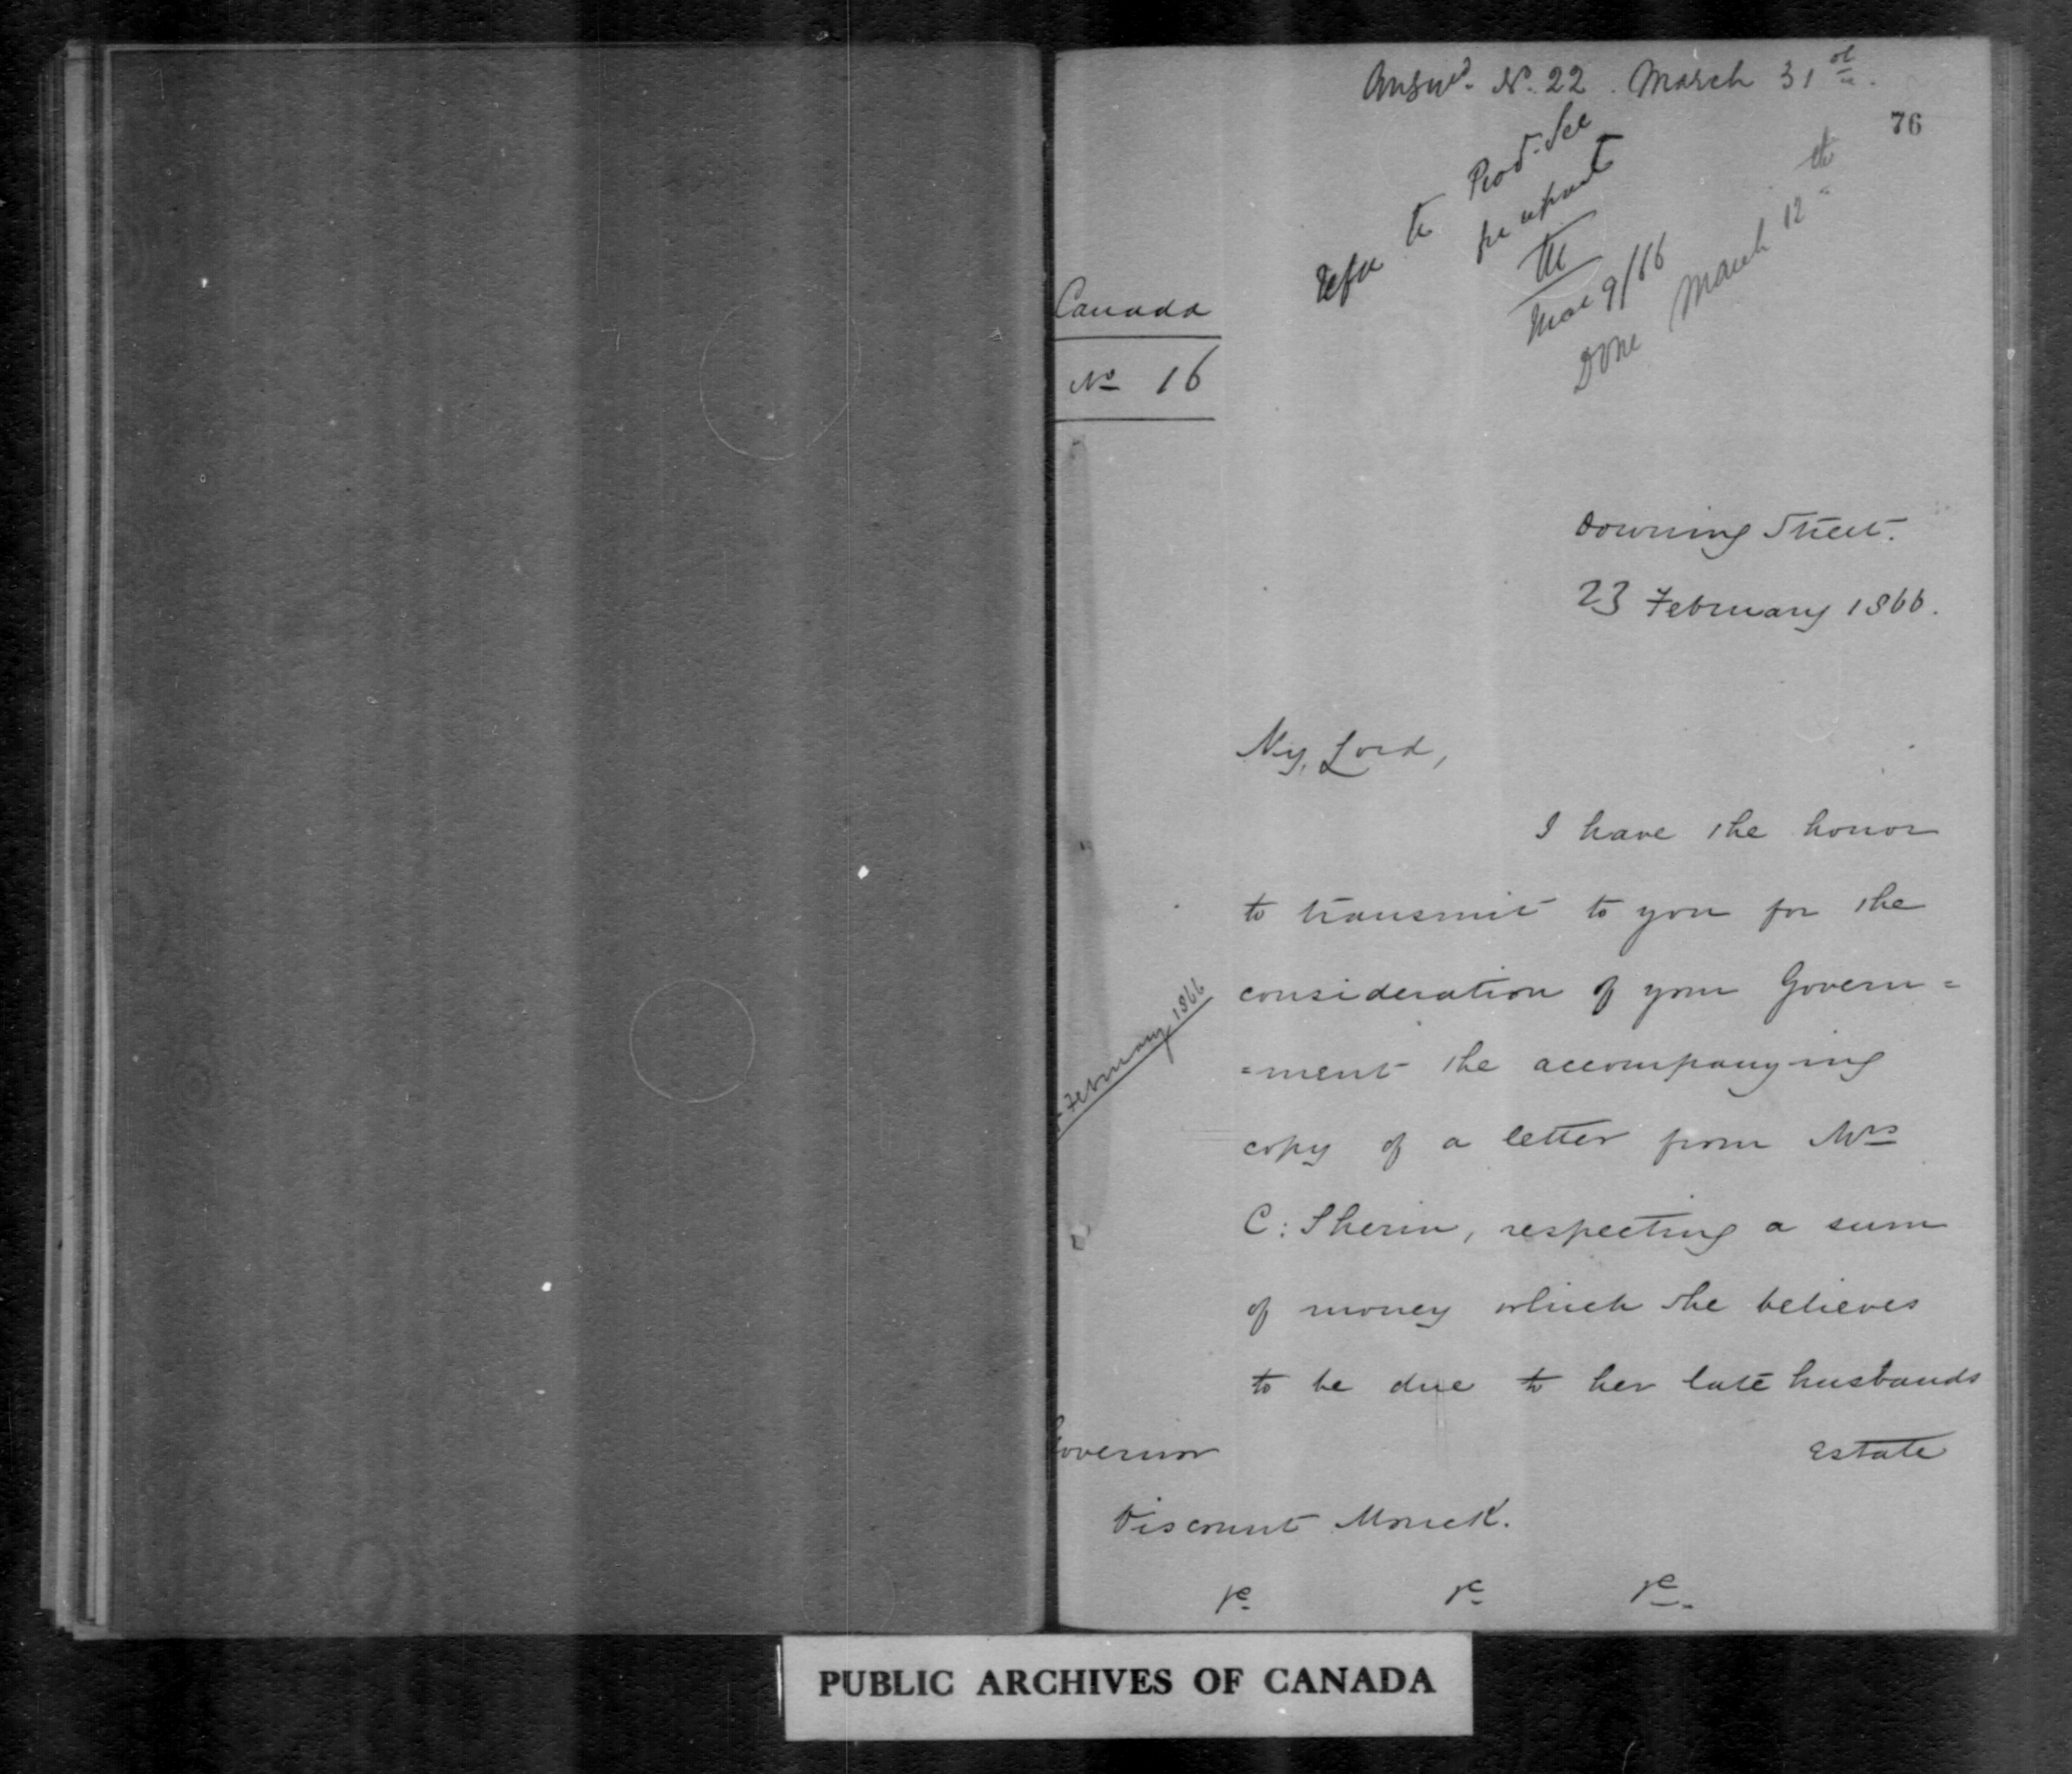 Answd. No. 22. March 31st.
76
Refer to Prov: Sec
for report
M
Mar 9/66
Done March 12th
Canada
No 16
Downing Street.
23 February 1866.
My Lord,
I have the honor
to transmit to you for the
consideration of your Govern=
=ment the accompanying
February 1866
copy of a letter from Mrs
C: Sherin, respecting a sum
of money which she believes
to be due to her late husbands
Estate
Governor
Viscount Monck.
&c. &c. &c.
PUBLIC ARCHIVES OF CANADA